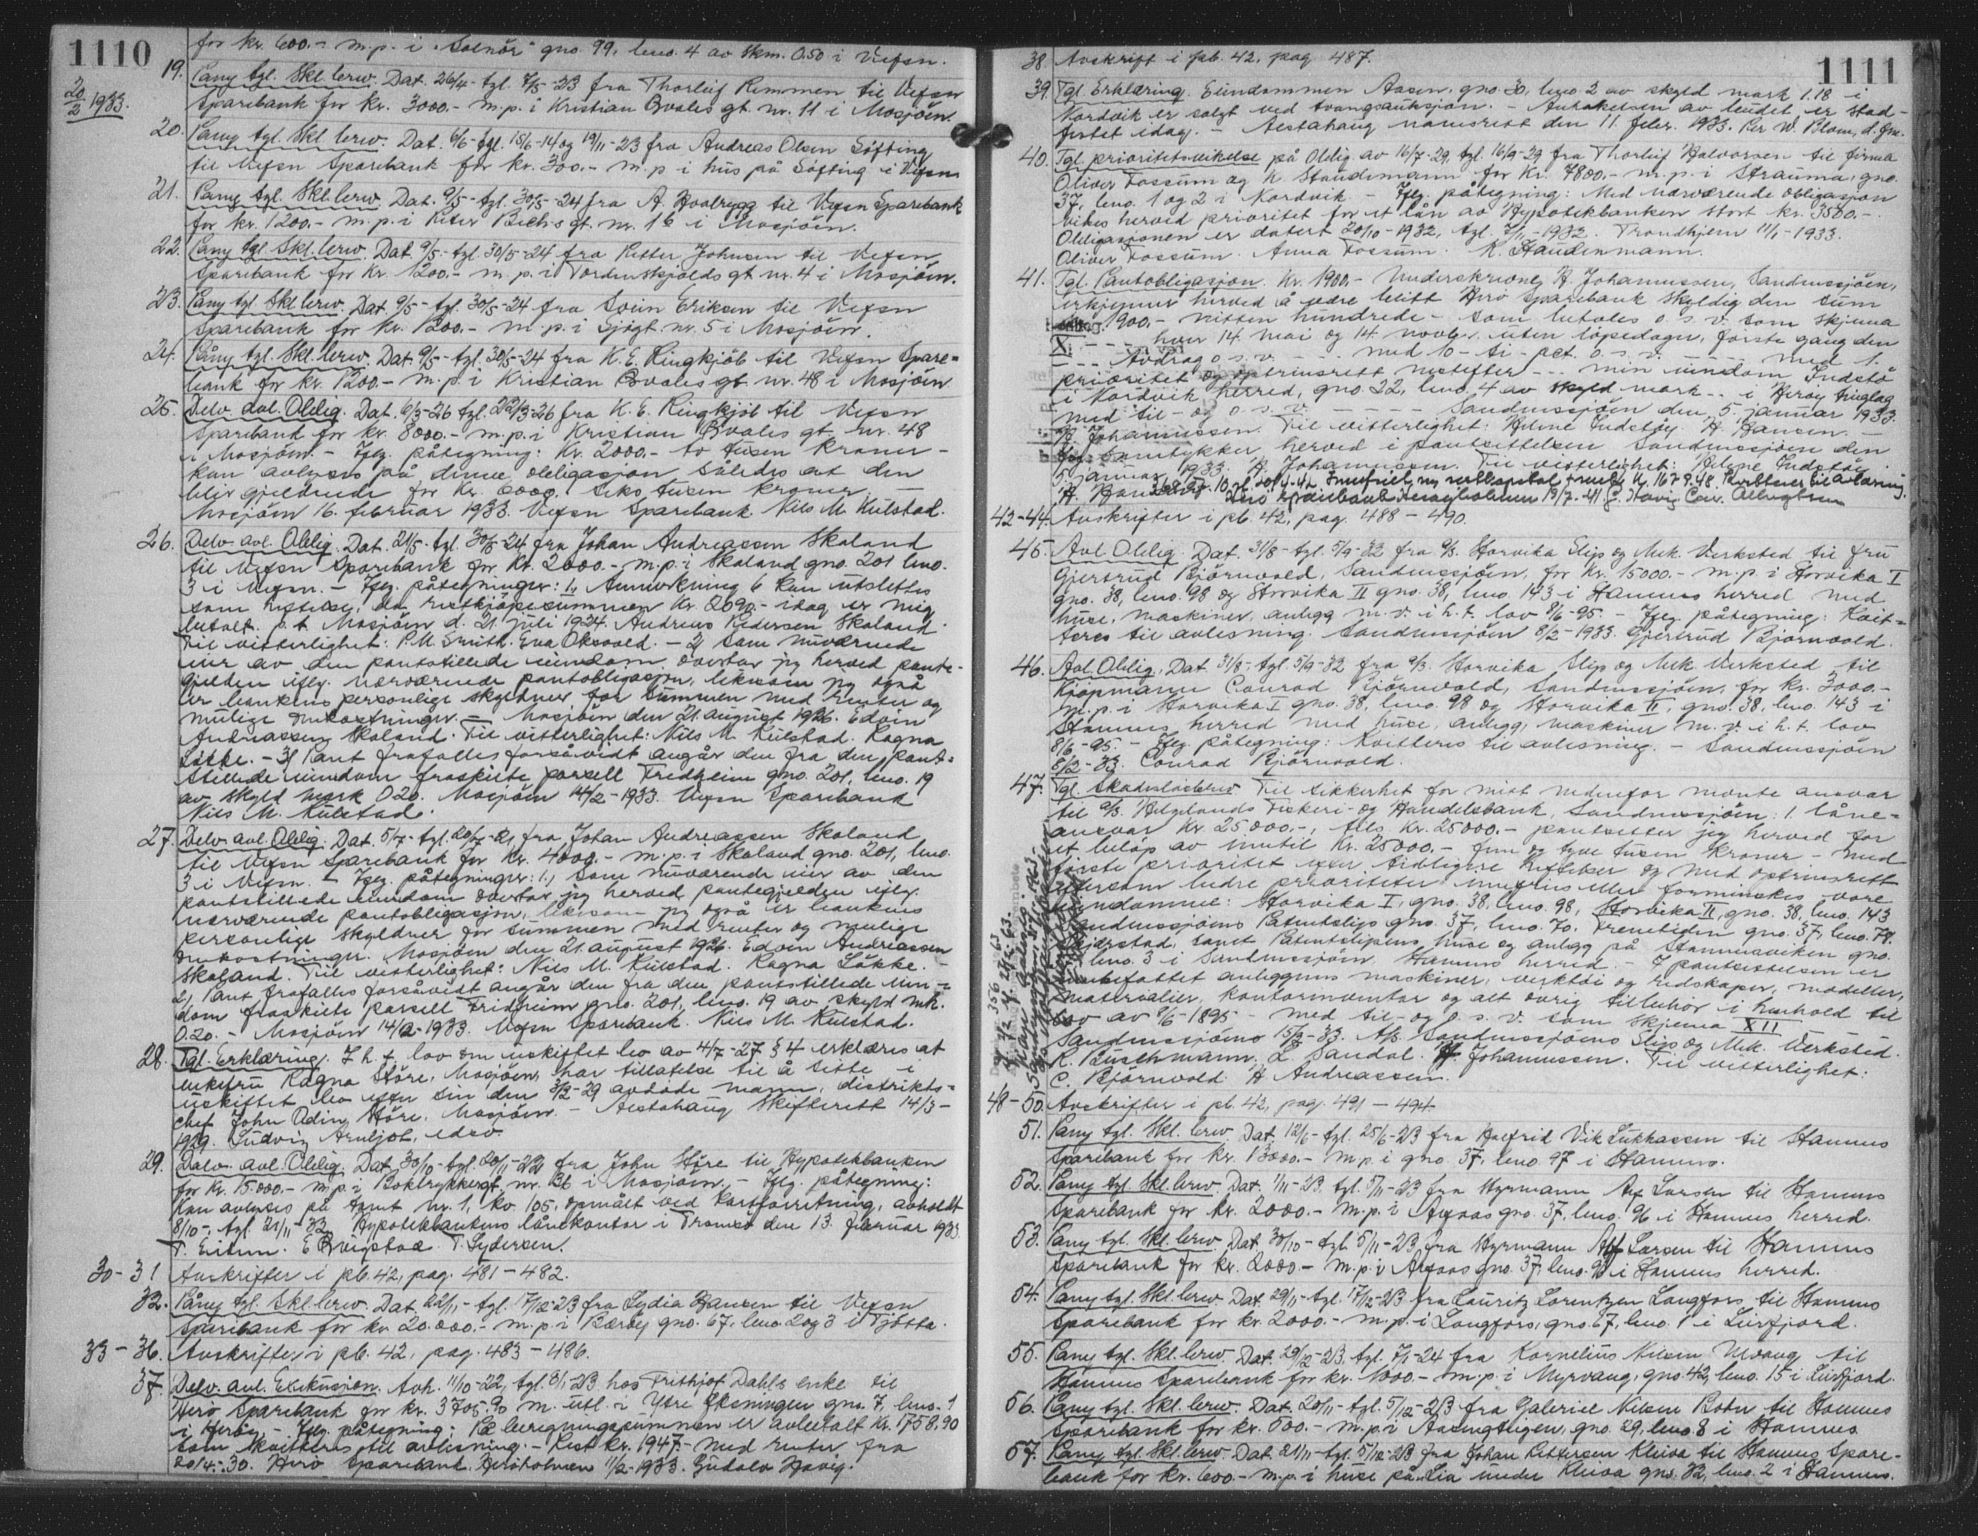 1110
20/2 1933.
for kr. 600.- m.p. i "Solnör" gno. 99, bno. 4 av skm. 0.50 i Vefsn.
19. Pany tgl. Skl.brev. Dat. 26/4- tgl. 7/5-23 fra Thorleif Remmen til Vefsn
Sparebank for kr. 3000.- m.p. i Kristian Qvales gt. nr. 11 i Mosjöen.
20. Pany tgl. Skl.brev. Dat. 6/6- tgl. 15/6-14 og 19/11-23 fra Andreas Olsen Söfting
til Vefsn Sparebank for kr. 300.- m.p. i hus på Söfting i Vefsn
21. Pany tgl. Skl.brev. Dat. 9/5- tgl. 30/5-24 fra A. Hvalrygg til Vefsn Sparebank
for kr. 1200.- m.p. i Peter Bechs gt. nr. 16 i Mosjöen.
22. Pany tgl. Skl.brev. Dat. 9/5- tgl. 30/5-24 fra Petter Johnsen til Vefsn
Sparebank for kr. 1200.- m.p. i Tordenskjolds gt. nr. 4 i Mosjöen.
23. Pany tgl. Skl.brev. Dat. 9/5- tgl. 30/5-24 fra Svein Eriksen til Vefsn
Sparebank for kr. 1200.- m.p. i Sjögt. nr. 5 i Mosjöen.
24. Pany tgl. Skl.brev. Dat. 9/5- tgl. 30/5-24 fra K. E. Ringkjöb til Vefsn Spare=
bank for kr. 1200.- m.p. i Kristian Qvales gt. nr. 48 i Mosjöen
25. Delv. avl. Oblig. Dat. 6/3-26 tgl. 22/3-26 fra K. E. Ringkjöb til Vefsn
Sparebank for kr. 8000.- m.p. i Kristian Qvales gt. nr. 48
i Mosjöen. - Iflg. påtegning: Kr. 2000.- to tusen kroner -
kan avlyses på denne obligasjon således at den
blir gjeldende for kr. 6000.- seks tusen kroner. -
Mosjöen 16. februar 1933. Vefsn Sparebank. Nils M. Kulstad.
26. Delv. avl. Oblig. Dat. 21/5- tgl. 30/5-24 fra Johan Andreassen Skaland
til Vefsn Sparebank for kr. 2000.- m.p. i Skaland gno. 201 bno.
3 i Vefsn. - Iflg. påtegninger: 1, Anmerkning 6 kan utslettes
som heftelse, da restkjöpesummen kr. 2690.- idag er mig
betalt. p.t. Mosjöen d. 21. juli 1924. Andreas Pedersen Skaland.
Til vitterlighet: P.M. Smith. Eva Oksvold. - 2, Som nuværende
eier av den pantstillede eiendom overtar jeg herved pante-
gjelden iflg. nærværende pantobligasjon, likesom jeg også
er bankens personlige skyldner for summen med renter og
mulige omkostninger. - Mosjöen den 21. august 1926. Edvin
Andreassen Skaland. Til vitterlighet: Nils M. Kulstad. Ragna
Lökke. - 3, Pant frafalles forsåvidt angår den fra den pant=
stillede eiendom fraskilte parsell Fridheim gno. 201, bno. 19
av skyld mark 0.20. Mosjöen 14/2-1933. Vefsn Sparebank
Nils M. Kulstad.
27. Delv. avl. Oblig. Dat. 5/7- tgl. 20/7-21 fra Johan Andreassen Skaland
til Vefsn Sparebank for kr. 4000.- m.p. i Skaland gno. 201, bno.
3 i Vefsn. - Iflg. påtegninger: 1, Som nuværende eier av den
pantstillede eiendom overtar jeg herved pantegjelden iflg.
nærværende pantobligasjon, likesom jeg også er bankens
personlige skyldner for summen med renter og mulige
omkostninger. Mosjöen den 21. august 1926. Edvin Andreassen
Skaland. Til vitterlighet: Nils M. Kulstad. Ragna Lökke. -
2, Pant frafalles forsåvidt angår den fra den pantstillede eien=
dom fraskilte parsell Fridheim, gno. 201, bno. 19 av skyld mk.
0.20. - Mosjöen 14/2-1933. Vefsn Sparebank. Nils M. Kulstad.
28. Tgl. Erklæring. I h. t. lov om uskiftet bo av 4/7-27 § 4 erklæres at
enkefru Ragna Höre, Mosjöen, har tillatelse til å sitte i
uskiftet bo efter sin den 3/2-29 avdöde mann, distrikts=
chef John Odin Höre. Mosjöen. - Alstahaug skifterett 14/3-
1929. Ludvig Arnljot, edsv.
29. Delv. avl. Oblig. Dat. 30/10- tgl. 20/11-22 fra John Höre til Hypotekbanken
for kr. 15000.- m.p. i Boktrykkergt. nr. 26 i Mosjöen. - Iflg. påtegning:
Kan avlyses på tomt nr. 1, kv. 105, opmålt ved kartforretning, avholdt
8/10-, tgl. 21/11-32. Hypotekbankens lånekontor i Tromsö den 13. februar 1933.
T. Eitrem. E Qvigstad. T. Sydersen.
30-31 Avskrifter i pb. 42, pag. 481-482.
32. Pany tgl. Skl.brev. Dat. 22/11- tgl. 7/12-23 fra Lydia Hansen til Vefsn
Sparebank for kr. 20.000.- m.p. i Bæröy gno. 67, bno. 2 og 3 i Tjötta.
33-36. Avskrifter i pb. 42, pag. 483-486.
37. Delv. avl. Exekusjon. Avh. 11/10-22, tgl. 8/1-23 hos Frithjof Dahls enke til
Herö Sparebank for kr. 3705.90 m. utl. i Ytre Öksningen gno. 7, bno. 1
i Heröy. - Iflg. påtegning: På beregningssummen er avbetalt kr. 1758.90
som kvitteres til avlesning. - Rest kr. 1947.- med renter fra
20/4-30. Herö Sparebank. Heröholmen 11/2-1933. Gudolv Havig.
1111
38. Avskrift i pb. 42, pag. 487.
39. Tgl. Erklæring. Eiendommen Aasen, gno. 30, bno. 2 av skyld mark 1.18 i
Nordvik er solgt ved tvangsauksjon. - Antakelsen av budet er stad-
festet idag. - Alstahaug namsrett den 11. febr. 1933. Per W. Blom, d.fm.
40. Tgl. prioritetsvikelse på Oblig. av 16/7-29, tgl. 16/9-29 fra Thorleif Halvorsen til firma
Oliver Fossum og K. Staudenmann for kr. 7800.- m.p. i Strauma, gno.
37, bno. 1 og 2 i Nordvik. - Iflg. påtegning: Med nærværende obligasjon
vikes herved prioritet for et lån av Hypotekbanken stort kr. 3500.-.
Obligasjonen er datert 20/10-1932, tgl. 7/11-1932. Trondhjem 11/1-1933.
Oliver Fossum. Anna Fossum. K. Staudenmann.
41. Tgl. Pantobligasjon. Kr. 1900.- Underskrevne H. Johannessen, Sandnessjöen,
erkjenner herved å være blitt Herö Sparebank skyldig den sum
kr. 1900.- nitten hundrede - som betales o.s.v. som skjema
X. - - - hver 14 mai og 14. novbr. uten löpedager, förste gang den
- - - Avdrag o.s.v. - - - med 10 - ti - pct. o.s.v. - - - - med 1.
prioritet og optrinsrett nestefter - - - min eiendom Indstö
i Nordvik herred, gno 22, bno. 4 av skyld mark - - i Heröy tinglag
med til- og o.s.v. - - - - - Sandnessjöen den 5. januar 1933.
H. Johannessen. Til vitterlighet: Hilene Indstöy. H. Hansen. -
Jeg samtykker herved i pantsettelsen Sandnessjöen den
5. januar 1933. H. Johannessen. Til vitterlighet: Helene Indstöy.
H. Hansen.
Herö Sparebank Heröyholmen 19/7-41 G. Havig
42-44. Avskrifter i pb. 42, pag. 488-490.
45. Avl. Oblig. Dat. 31/8- tgl. 5/9-32 fra A/S. Horvika Slip og Mek. Verksted til fru
Gjertrud Björnvold, Sandnessjöen, for kr. 15000.- m.p. i Horvika I
gno. 38, bno. 98 og Storvika II gno. 38, bno. 143 i Stamnes herred med
huse, maskiner, anlegg m.v. i h.t. lov 8/6-95. - Iflg. påtegning: Kvit=
teres til avlesning. Sandnessjöen 8/2-1933. Gjertrud Björnvold.
46. Avl. Oblig. Dat. 31/8- tgl. 5/9-32 fra A/S. Horvika Slip og Mek. Verksted til
Kjöpmann Conrad Björnvold, Sandnessjöen, for kr. 3000.-
m.p. i Horvika I gno. 38, bno. 98 og Horvika II, gno. 38, bno. 143 i
Stamnes herred med huse, anlegg, maskiner m.v. i h.t. lov
8/6-95. - Iflg. påtegning: Kvitteres til avlesning. - Sandnessjöen
8/2-33. Conrad Björnvold.
47. Tgl. Skadeslösbrev. Til sikkerhet for mitt nedenfor nevnte ansvar
til A/S. Helgelands Fiskeri- og Handelsbank, Sandnessjöen: 1. låne=
ansvar kr. 25000.-, tils. kr. 25000.- pantsetter jeg herved for
et belöp av inntil kr. 25000.- fem og tyve tusen kroner - med
förste prioritet efter tidligere heftelser og med optrinsrett
eftersom bedre prioriteter innfries eller forminskes vore
eiendomme: Horvika I, gno. 38, bno. 98, Horvika II, gno. 38, bno. 143
Sandnessjöens Patentslip gno. 37, bno. 70. Fremtiden gno. 37, bno. 78.
samt Patentslipens huse og anlegg på Stamnesviken gno.
bno. 3 i Sandnessjöen Stamnes herred. - I pantsettelsen er
innbefattet anleggenes maskiner, verktöi og redskaper, modeller,
materialier, kontorinventar og alt övrig tilbehör i henhold til
lov av 8/6-1895 - med til- og o.s.v. som skjema XII
Sandnessjöen 15/2-33. A/S. Sandnessjöens Slip og Mek. Verksted.
R. Buschmann. L. Sandal. H. Johannessen. Til vitterlighet:
C. Björnvold. H Andreassen.
48-50. Avskrifter i pb. 42, pag. 491-494.
51. Pany tgl. Skl.brev. Dat. 12/6- tgl. 25/6-23 fra Halfrid Vik Lukkassen til Stamnes
Sparebank for kr. 13000.- m.p. i gno. 37, bno. 97 i Stamnes.
52. Pany tgl. Skl.brev. Dat. 1/11-23 tgl. 5/11-23 fra Styrmann Alf Larsen til Stamnes
Sparebank for kr. 2000.- m.p. i gno. 37, bno. 96 i Stamnes herred.
53. Pany tgl. Skl.brev. Dat. 30/10- tgl. 5/11-23 fra Styrmann Alf Larsen til Stamnes
Sparebank for kr. 2000.- m.p. i gno. 37, bno. 96 i Stamnes herred.
54. Pany tgl. Skl.brev. Dat. 29/11- tgl. 17/12-23 fra Lauritz Lorentzen Langfors til Stamnes
Sparebank for kr. 2000.- m.p. i Langfors, gno. 67, bno. 1 i Leirfjord.
55. Pany tgl. Skl.brev. Dat. 29/12-23, tgl. 7/1-24 fra Kornelius Nilsen Ulvang til
Stamnes Sparebank for kr. 1000.- m.p. i Myrvang, gno. 42, bno. 15 i Leirfjord.
56. Pany tgl. Skl.brev. Dat. 20/11- tgl. 5/12-23 fra Gabriel Nilsen Botn til Stamnes
Sparebank for kr. 500.- m.p. i gno. 29, bno. 8 i Stamnes
57. Pany tgl. Skl.brev. Dat. 21/11- tgl. 5/12-23 fra Johan Pettersen Kleiva til Stamnes Spare-
bank for kr. 600.- m.p. i huse på Lia under Kleiva gno. 32, bno. 2 i Stamnes.